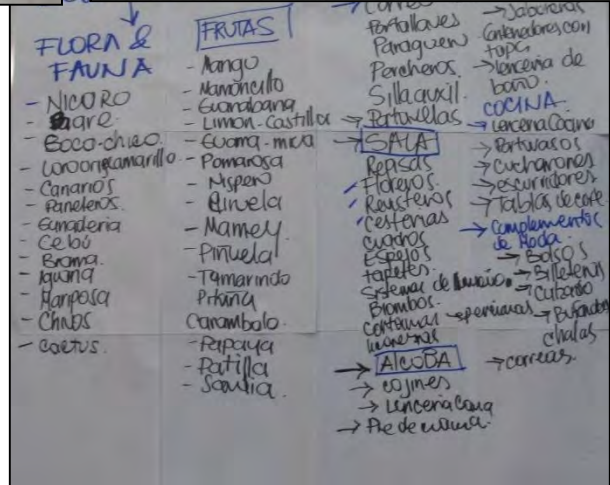 FLORA &
FAUNA
- NICORO
- Bagre.
- Boco-chico.
- Loro orejiamarillo.
- Canarios
- Paneleros.
- Ganaderia
- Cebú
- Broma.
- Iguana
- Mariposa
- Chivos
- Cactus.
FRUTAS
- Mango
- Mamoncillo
- Guanabana
- Limon-Castilla
- Guama-mica
- Pomarosa
- Nispero
- Ciruela
- Mamey
- Piñuela
- Tamarindo
Pitaina
Carambolo.
- Papaya
- Patilla
- Sandia
→ Correo
Portallaves
Paraguero
Percheros.
Silla auxil.
→ Portavelas
→ SALA
Repisas
Floreros.
Revisteros
Cesterias
Cuadros
Espejos
tapetes.
Sistemas de
Biombos.
Cortinas → persianas
→ ALCOBA
→ cojines
→ Lenceria cama
→ Pie de cama.
→ Jaboneras
Contenedores con
tapa
→ lenceria de
baño.
COCINA.
→ Lenceria Cocina
→ Portavasos
→ Cucharones
→ escurridores
→ Tablas de corte
→ Complementos
de Moda.
→ Bolsos
→ Billeteras
→ Bufandas
chalas
→ correas.